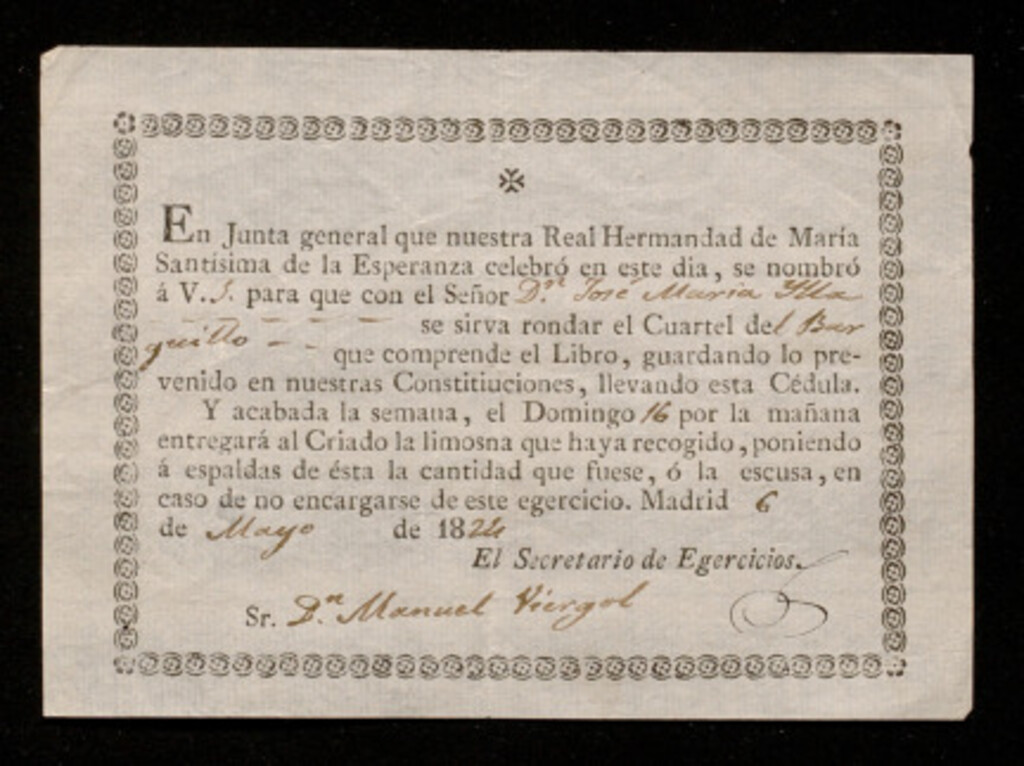 En Junta general que nuestra Real Hermandad de María
Santísima de la Esperanza celebró en este dia, se nombró
á V.S. para que con el Señor Dn. José Maria Ylla
se sirva rondar el Cuartel del Bar
quillo - - que comprende el Libro, guardando lo pre-
venido en nuestras Constitiuciones, llevando esta Cédula.
Y acabada la semana, el Domingo 16 por la mañana
entregará al Criado la limosna que haya recogido, poniendo
á espaldas de ésta la cantidad que fuese, ó la escusa, en
caso de no encargarse de este egercicio. Madrid 6
de Mayo de 1824
El Secretario de Egercicios.
Sr. Dn. Manuel Viergol